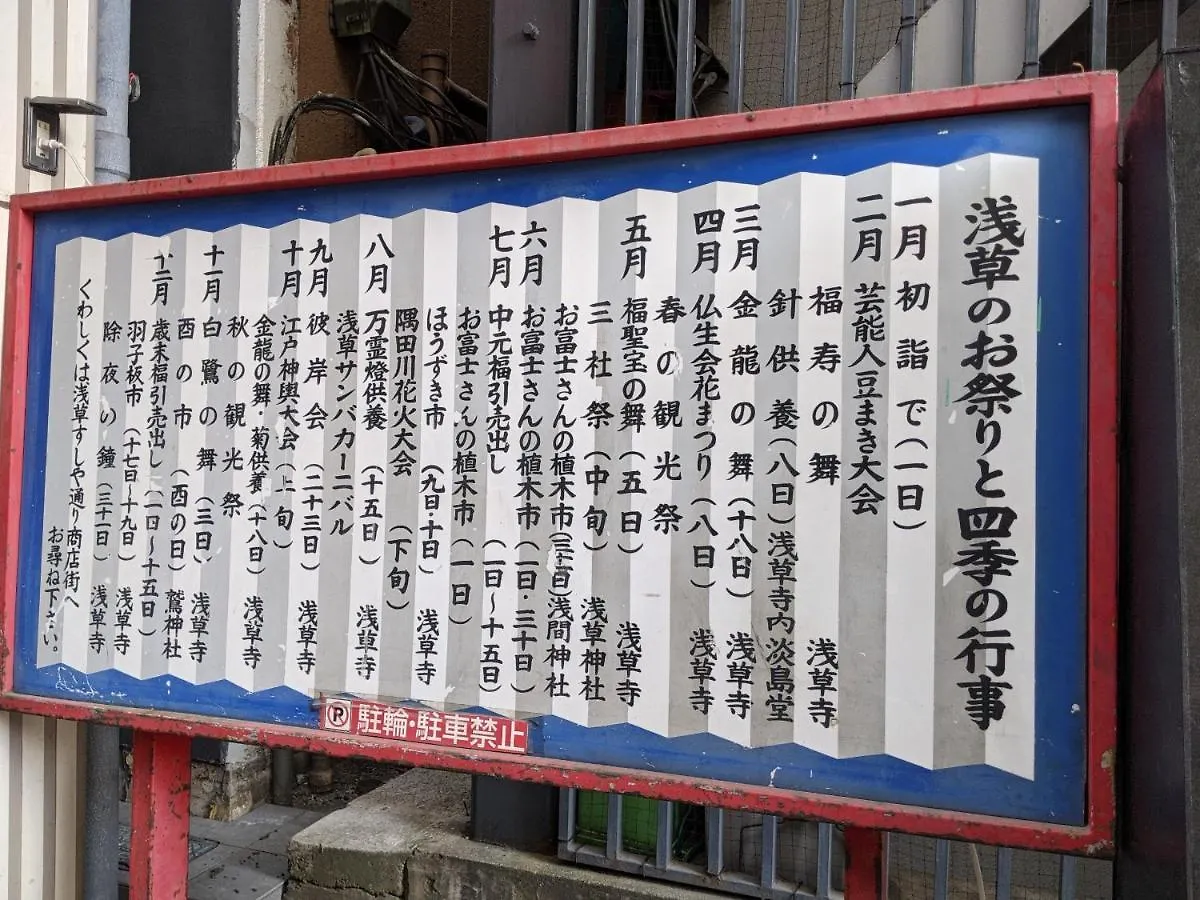 浅草のお祭りと四季の行事
一月 初詣で(一日)
二月 芸能人豆まき大会
福寿の舞 浅草寺
針供養(八日)浅草寺内淡島堂
三月 金龍の舞(十八日) 浅草寺
四月 仏生会花まつり(八日) 浅草寺
春の観光祭
五月 福聖宝の舞(五日) 浅草寺
三社祭(中旬) 浅草神社
お富士さんの植木市(三十一日)浅間神社
六月 お富士さんの植木市(一日・三十日)
七月 中元福引売出し (一日〜十五日)
お富士さんの植木市(一日)
ほうずき市 (九日・十日) 浅草寺
隅田川花火大会 (下旬)
八月 万霊燈供養 (十五日) 浅草寺
浅草サンバカーニバル
九月 彼岸会 (二十三日) 浅草寺
十月 江戸神輿大会(上旬)
金龍の舞・菊供養(十八日) 浅草寺
秋の観光祭
十一月 白鷺の舞(三日) 浅草寺
酉の市 (酉の日) 鷲神社
十二月 歳末福引売出し(一日〜十五日)
羽子板市 (十七日〜十九日) 浅草寺
除夜の鐘(三十一日) 浅草寺
くわしくは浅草すしや通り商店街へ
お尋ね下さい。
P 駐輪・駐車禁止